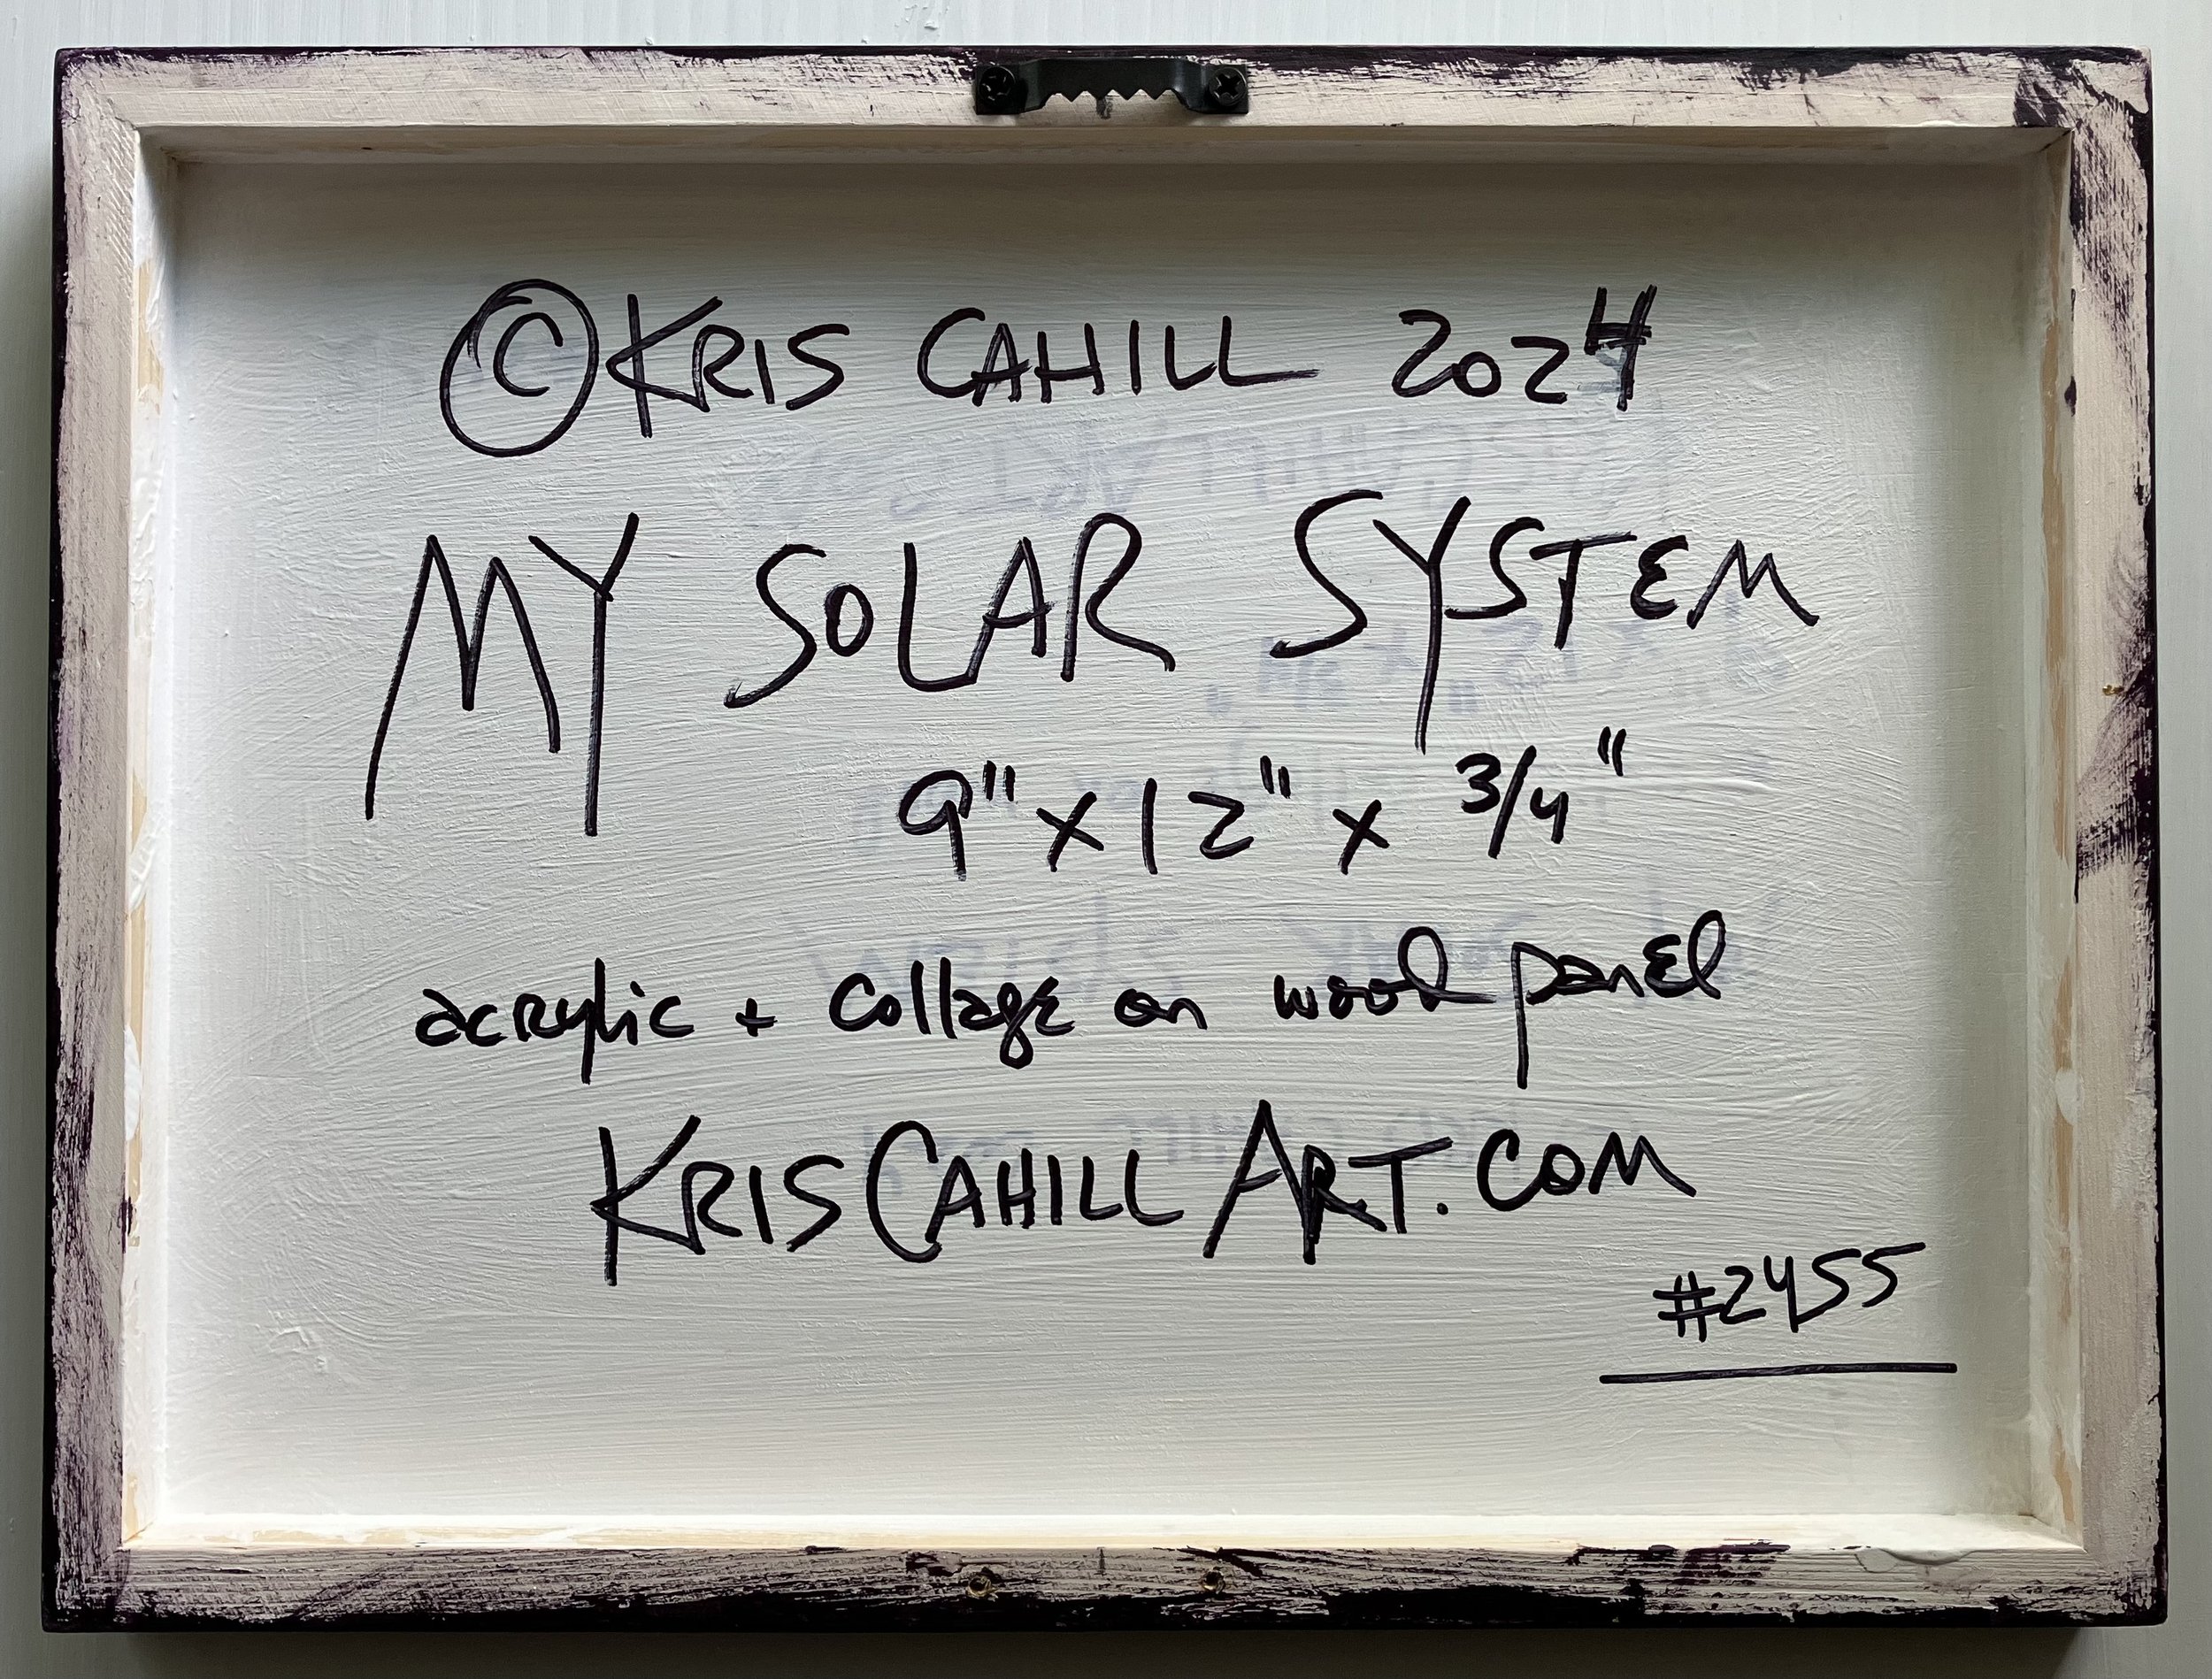 © KRIS CAHILL 2024
MY SOLAR SYSTEM
9" x 12" x 3/4"
acrylic + collage on wood panel
KRISCAHILLART.COM
#2455